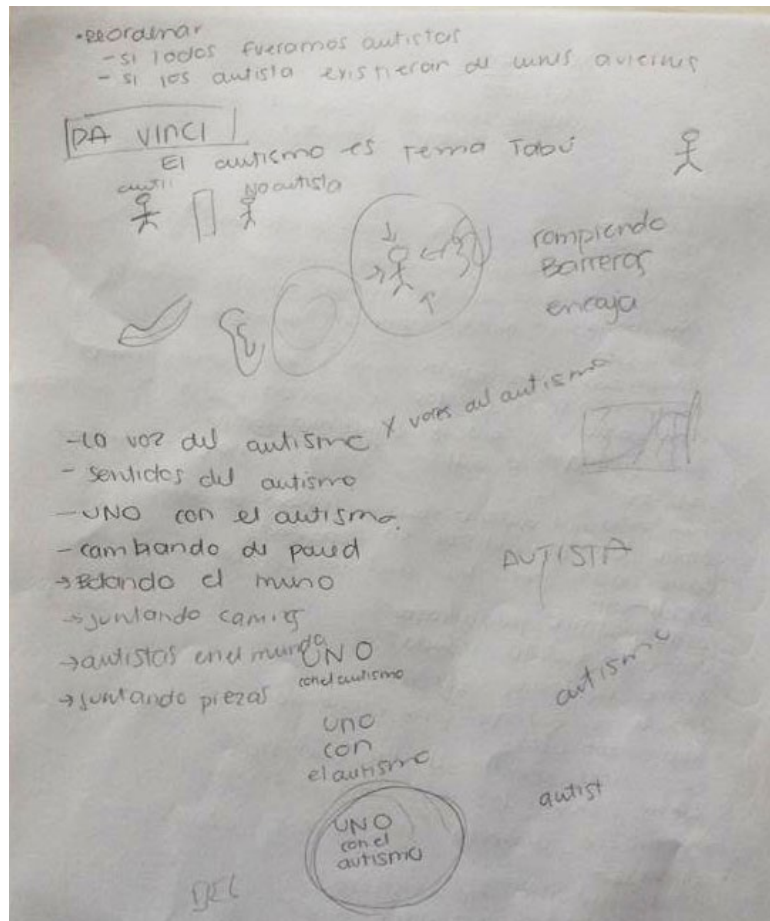 •Reordenar
- si todos fueramos autistas
- si los autista existieran de
DA VINCI
El autismo es tema Tabú
auti
No autista
rompiendo
Barreras
encaja
- la voz del autismo y voces del autismo
- sentidos del autismo
- UNO con el autismo.
- cambiando de pared
→ el muno
→ juntando
→ autistas en el mundo
→ juntando piezas
AUTISTA
UNO
con el autismo
autismo
uno
con
el autismo
autist
UNO
con el
autismo